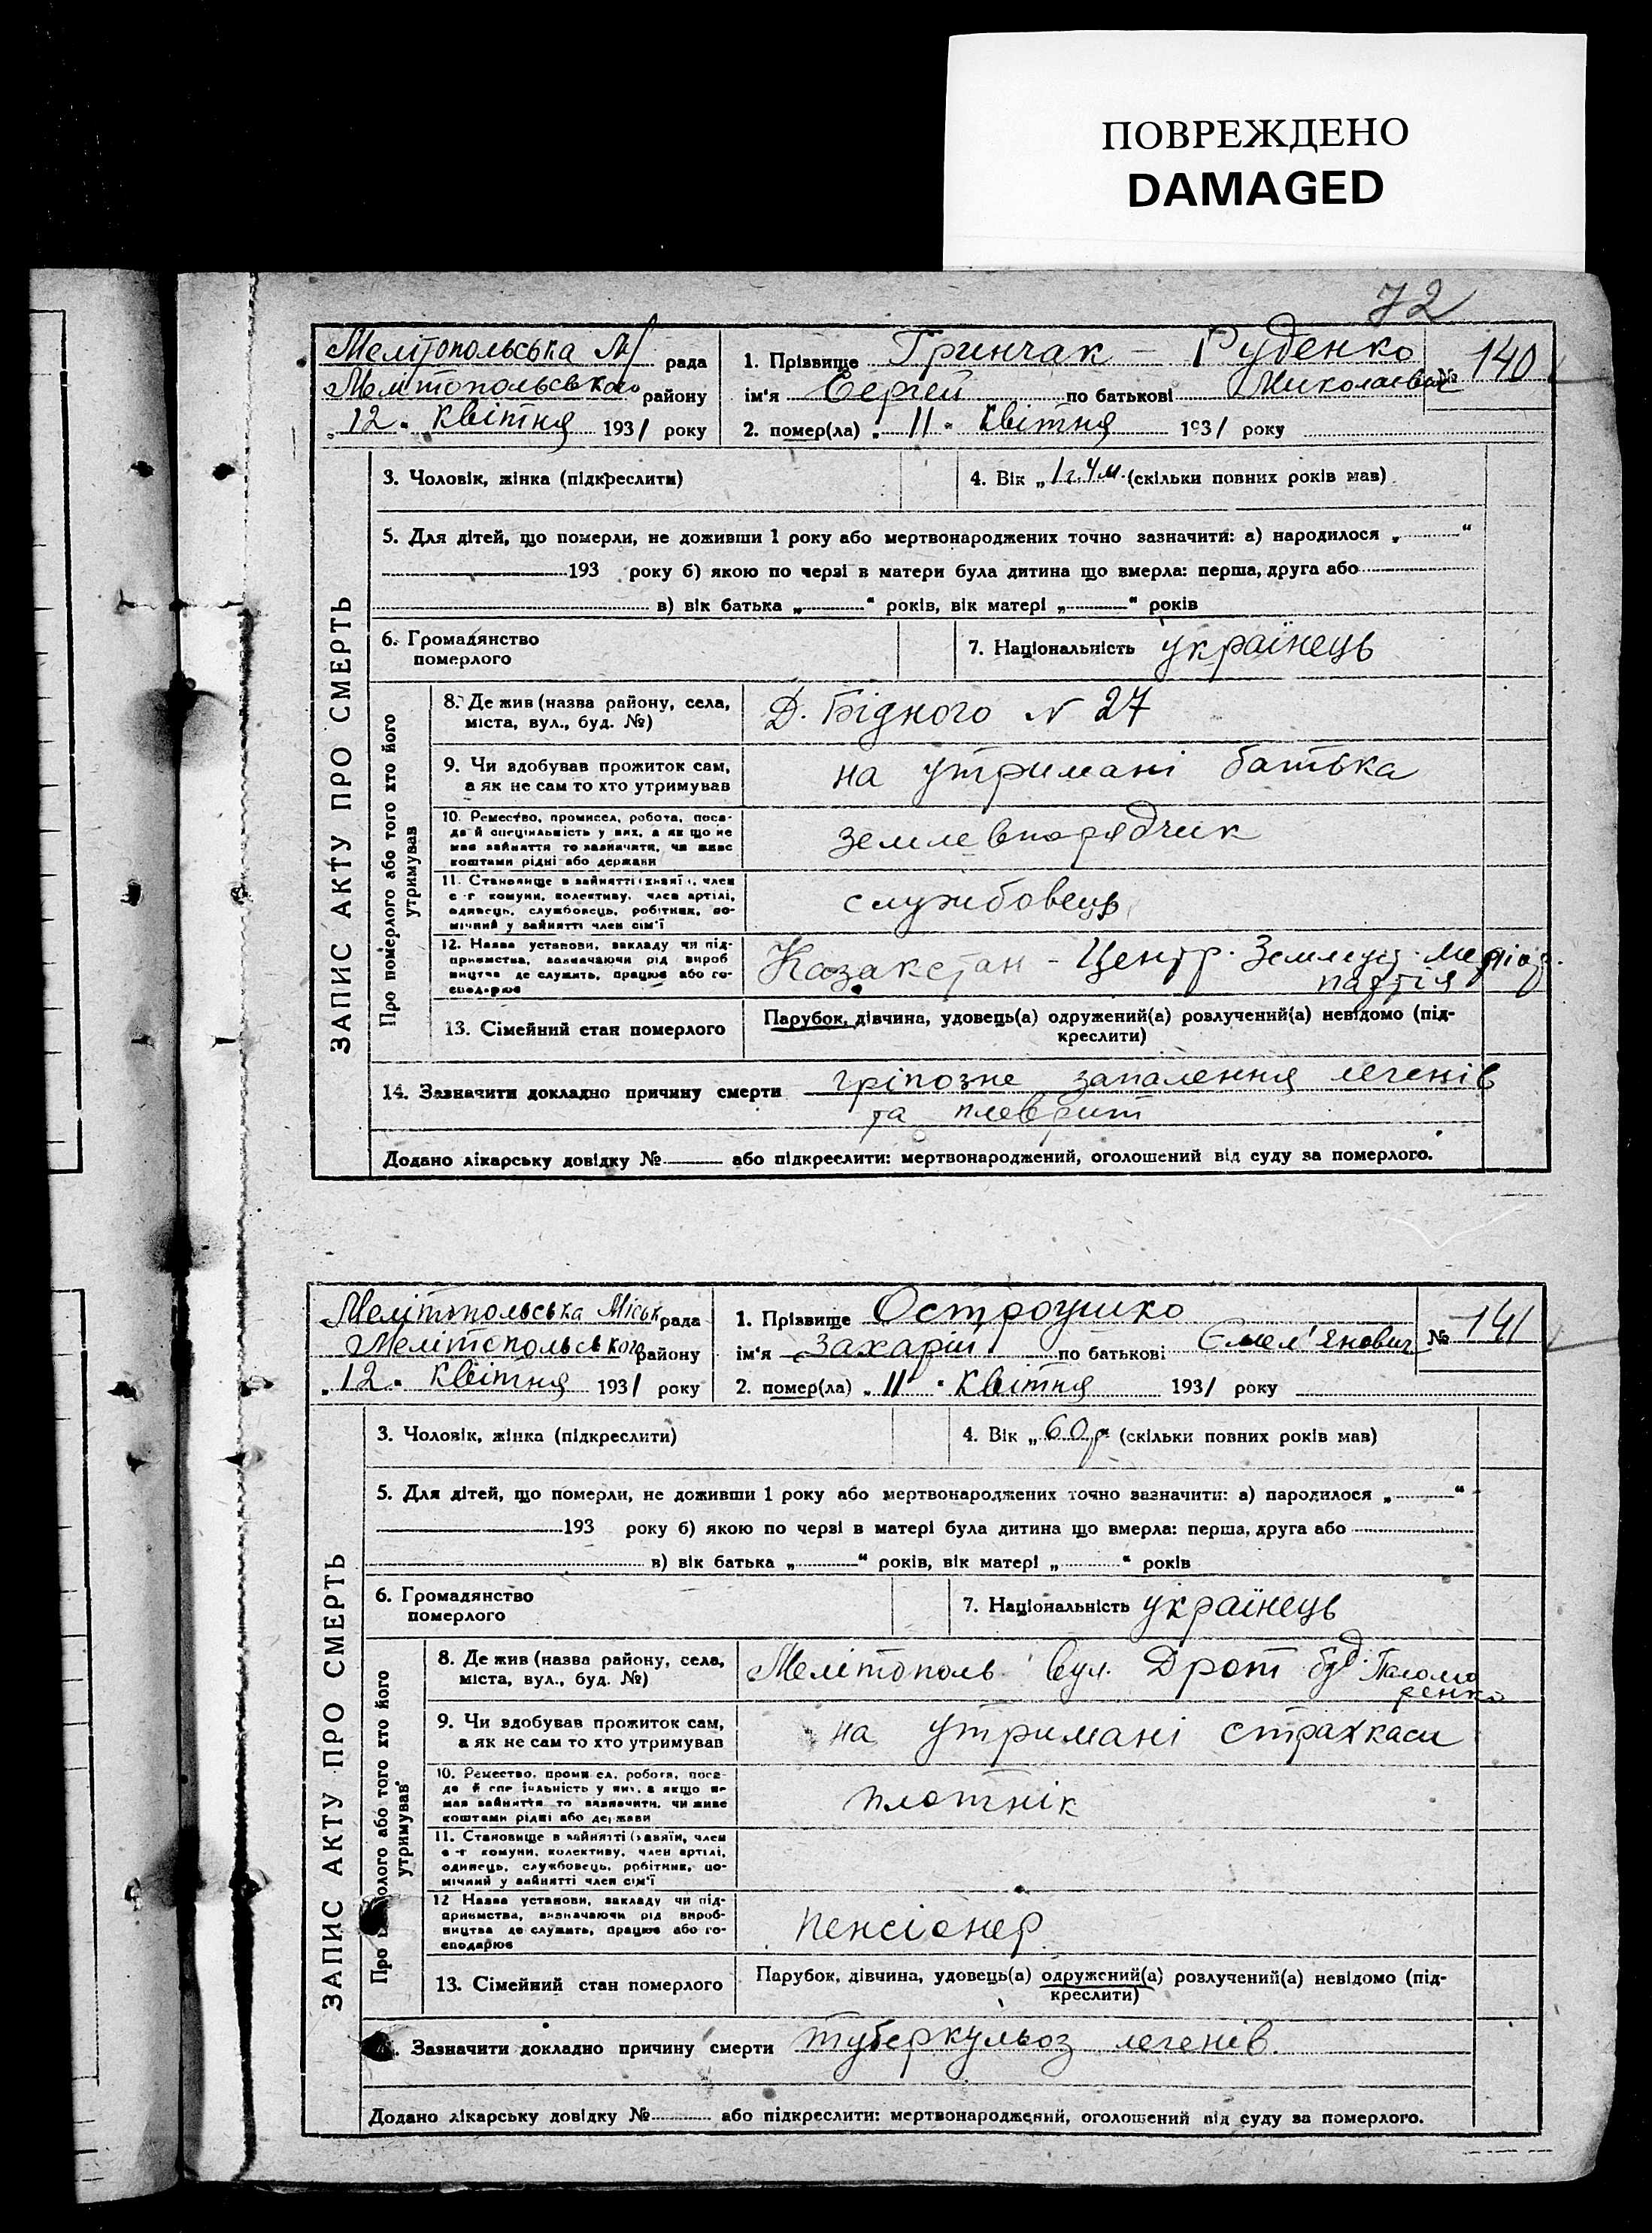 ПОВРЕЖДЕНО
DAMAGED
72
Мелітопольська М/ рада
Мелітопольського району
„12" Квітня 1931 року
1. Прізвище Гринчак - Руденко
ім'я Сергей по батькові Миколаевич
№ 140
2. помер(ла) „11" Квітня 1931 року
ЗАПИС АКТУ ПРО СМЕРТЬ
3. Чоловік, жінка (підкреслити)
4. Вік „1 г. 4 м. (скільки повних років мав)
5. Для дітей, що померли, не доживши 1 року або мертвонароджених точно зазначити: а) народилося „ “
193 року б) якою по черзі в матери була дитина що вмерла: перша, друга або
в) вік батька „ “ років, вік матері „ “ років
6. Громадянство
померлого
7. Національність українець
Про померлого або того хто його
утримував
8. Де жив (назва району, села,
міста, вул., буд. №)
Д. Бідного N 27
9. Чи здобував прожиток сам,
а як не сам то хто утримував
на утримані батька
10. Ремество, промисел, робота, поса-
да й спеціальність у них, а як що не
мав зайняття то зазначити, чи живе
коштами рідні або держави
землевпорядчик
11. Становище в зайнятті (хазяїн, член
с.-г. комуни, колективу, член артілі,
одинець, службовець, робітник, по-
мічний у зайнятті член сім'ї
службовець
12. Назва установи, закладу чи під-
приємства, зазначаючи рід вироб
ництва де служить, працює або го-
сподарює
Казакстан - Центр. Землеуст.
партія
13. Сімейний стан померлого
Парубок, дівчина, удовець(а) одружений(а) розлучений(а) невідомо (під-
креслити)
14. Зазначити докладно причину смерти гріпозне запалення легенів
та плеврит
Додано лікарську довідку № або підкреслити: мертвонароджений, оголошений від суду за померлого.
Мелітопольська Міськ рада
Мелітопольського району
„12" Квітня 1931 року
1. Прізвище Остроушко
ім'я Захарій по батькові Ємел'янович
№ 141
2. помер(ла) „11" Квітня 1931 року
ЗАПИС АКТУ ПРО СМЕРТЬ
3. Чоловік, жінка (підкреслити)
4. Вік „60 р" (скільки повних років мав)
5. Для дітей, що померли, не доживши 1 року або мертвонароджених точно зазначити: а) народилося „ “
193 року б) якою по черзі в матері була дитина що вмерла: перша, друга або
в) вік батька „ “ років, вік матері „ “ років
6. Громадянство
померлого
7. Національність українець
Про олого або того хто його
утримував
8. Де жив (назва району, села,
міста, вул., буд. №)
Мелітополь вул. Дрот буд.
9. Чи здобував прожиток сам,
а як не сам то хто утримував
на утримані страхкаси
10. Ремество, промисел, робота, поса-
да й спеціальність у них, а якщо не
мав зайняття то зазначити, чи живе
коштами рідні або держави
плотнік
11. Становище в зайнятті (хазяїн, член
с-г комуни, колективу, член артілі,
одинець, службовець, робітник, по-
мічний у зайнятті член сім'ї
12 Назва установи, закладу чи під-
приємства, визначаючи рід вироб-
ництва де служить, працює або го-
сподарює
пенсіонер
13. Сімейний стан померлого
Парубок, дівчина, удовець(а) одружений(а) розлучений(а) невідомо (під-
креслити)
Зазначити докладно причину смерти туберкульоз легенів.
Додано лікарську довідку № або підкреслити: мертвонароджений, оголошений від суду за померлого.